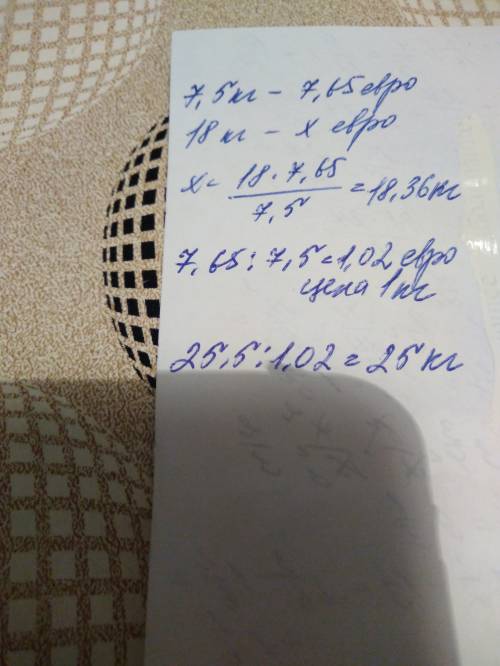 7,5кг - 7,65 евро
18 кг - х евро
х = 18 · 7,65 / 7,5 = 18,36 кг
7,65 : 7,5 = 1,02 евро
цена 1 кг
25,5 : 1,02 = 25 кг